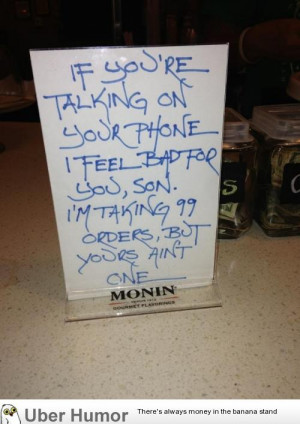 IF YOU'RE
TALKING ON
YOUR PHONE
I FEEL BAD FOR
YOU, SON.
I'M TAKING 99
ORDERS, BUT
YOURS AINT
ONE
MONIN
GOURMET FLAVORINGS
S
Uber Humor
There's always money in the banana stand